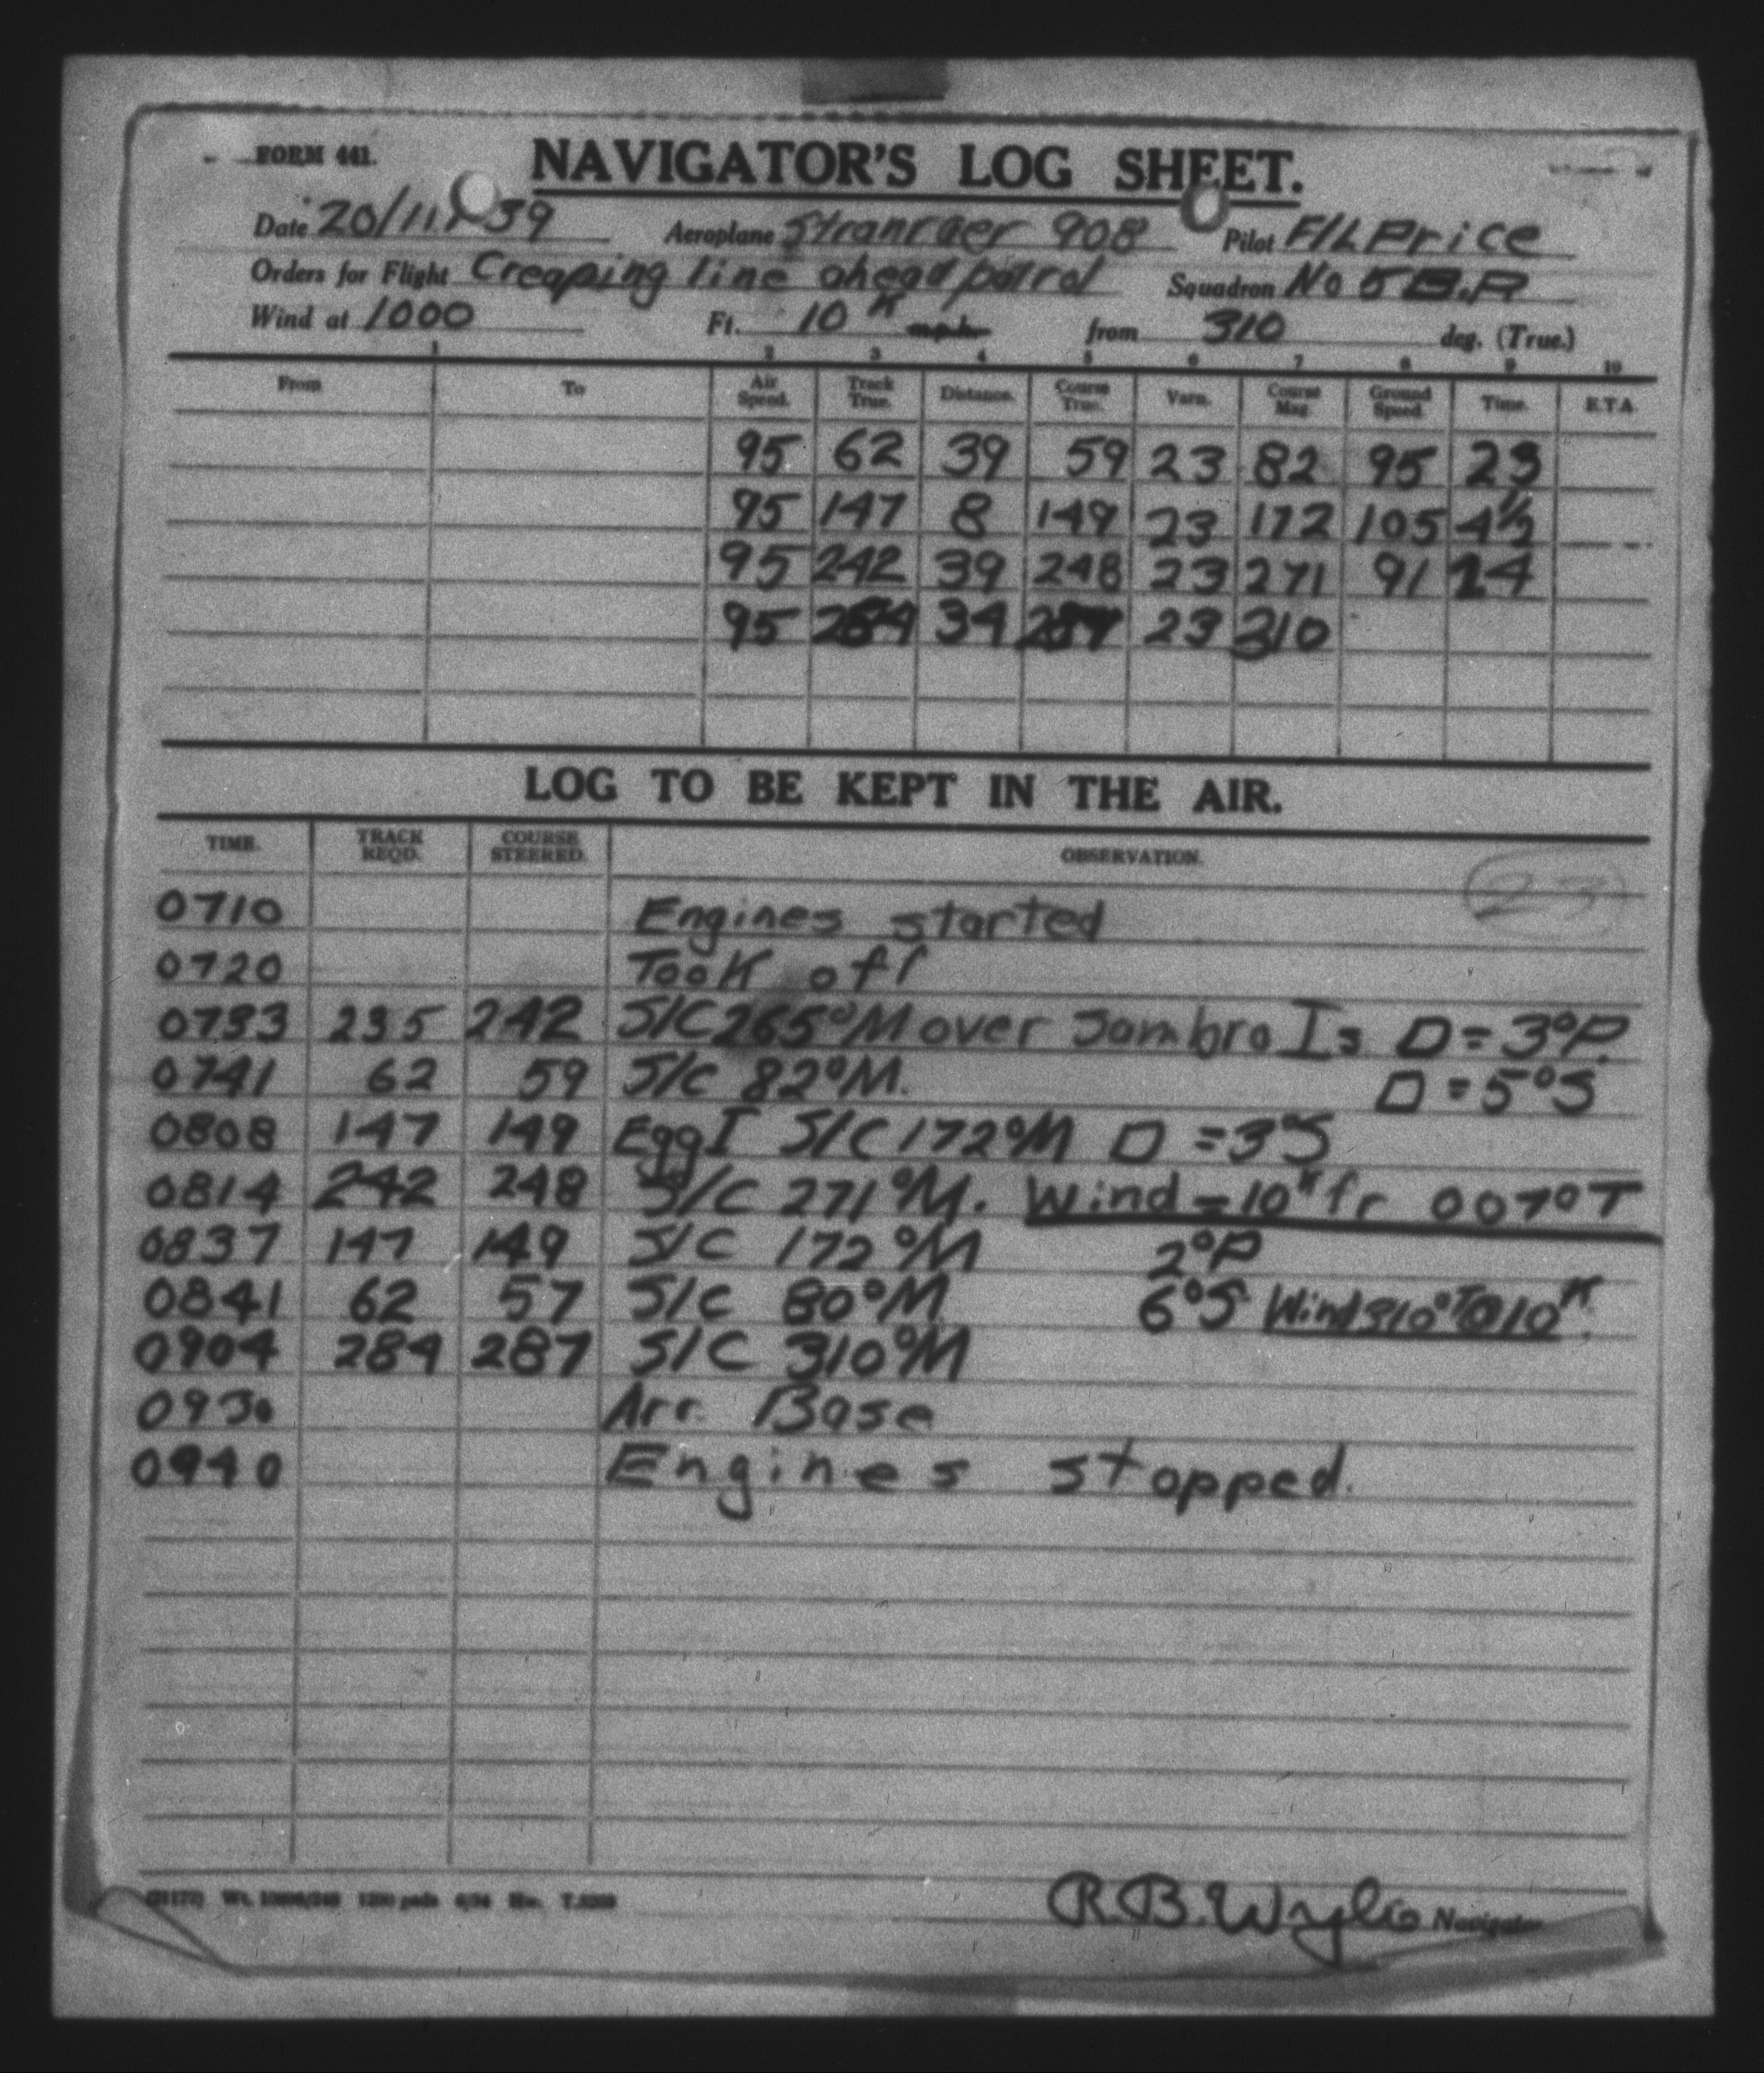 FORM 441.
NAVIGATOR'S LOG SHEET.
Date 20/11/39 Aeroplane Stranraer 908 Pilot F/L Price
Orders for Flight Creaping line ahead patrol Squadron No 5 B.R
Wind at 1000 Ft. 10 K mph from 310 deg. (True.)
1 2 3 4 5 6 7 8 9 10
From To Air Speed. Track True. Distance. Course True. Varn. Course Mag. Ground Speed. Time. E.T.A.
95 62 39 59 23 82 95 23
95 147 8 149 23 172 105 4½
95 242 39 248 23 271 91 24
95 284 34 287 23 310
LOG TO BE KEPT IN THE AIR.
TIME. TRACK REQD. COURSE STEERED. OBSERVATION.
23
0710 Engines started
0720 Took off
0733 235 242 S/C 265°M over Sambro Is D = 3°P.
0741 62 59 S/C 82°M. D = 5°S
0808 147 149 Egg I S/C 172°M D = 3°S
0814 242 248 S/C 271°M. Wind = 10K fr 007°T
0837 147 149 S/C 172°M 2°P
0841 62 57 S/C 80°M 6°S Wind 310°T @ 10K.
0904 284 287 S/C 310°M
0930 Arr. Base
0940 Engines stopped.
R.B. Wylie Navigator